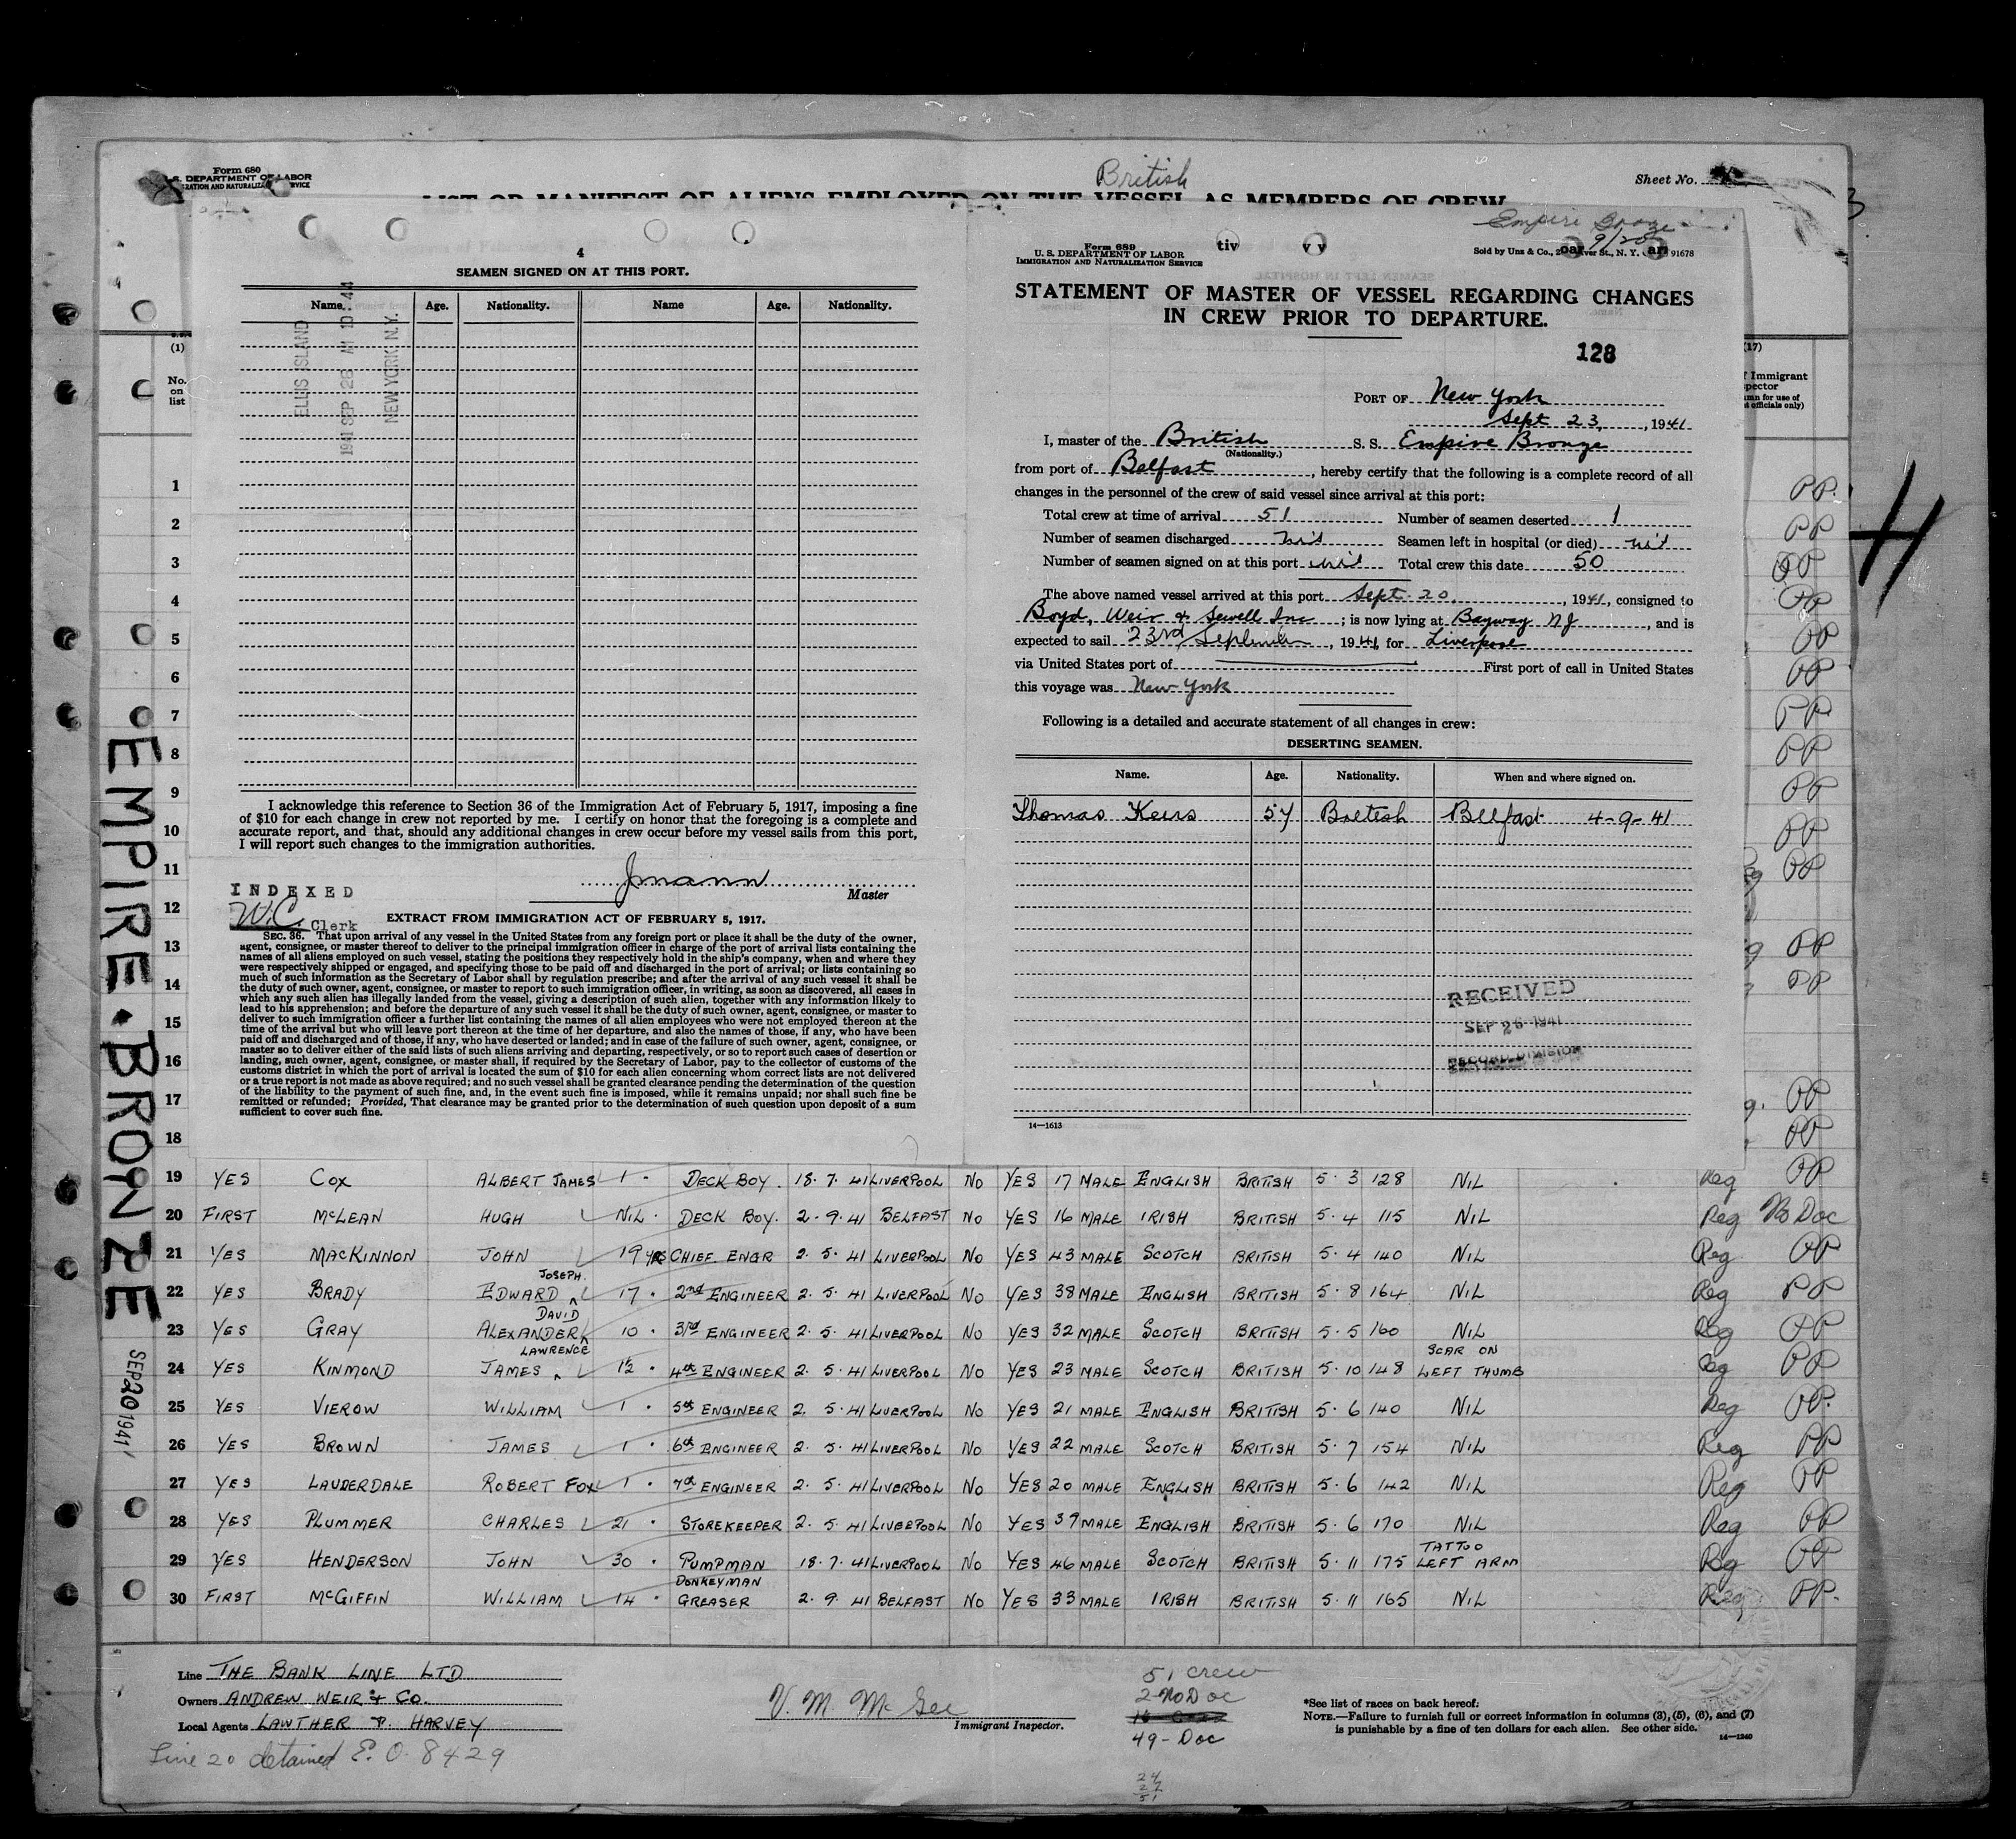 Form 680
U. S. DEPARTMENT OF LABOR
British
LIST OR MANIFEST OF ALIENS EMPLOYED ON THE VESSEL AS MEMBERS OF CREW
Sheet No.
4
SEAMEN SIGNED ON AT THIS PORT.
Name. Age. Nationality. Name Age. Nationality.
ELLIS ISLAND
1941 SEP 26 AM 10:44
NEW YORK N.Y.
I acknowledge this reference to Section 36 of the Immigration Act of February 5, 1917, imposing a fine
of $10 for each change in crew not reported by me. I certify on honor that the foregoing is a complete and
accurate report, and that, should any additional changes in crew occur before my vessel sails from this port,
I will report such changes to the immigration authorities.
JMann
Master
INDEXED
W.C. Clerk
EXTRACT FROM IMMIGRATION ACT OF FEBRUARY 5, 1917.
SEC. 36. That upon arrival of any vessel in the United States from any foreign port or place it shall be the duty of the owner,
agent, consignee, or master thereof to deliver to the principal immigration officer in charge of the port of arrival lists containing the
names of all aliens employed on such vessel, stating the positions they respectively hold in the ship's company, when and where they
were respectively shipped or engaged, and specifying those to be paid off and discharged in the port of arrival; or lists containing so
much of such information as the Secretary of Labor shall by regulation prescribe; and after the arrival of any such vessel it shall be
the duty of such owner, agent, consignee, or master to report to such immigration officer, in writing, as soon as discovered, all cases in
which any such alien has illegally landed from the vessel, giving a description of such alien, together with any information likely to
lead to his apprehension; and before the departure of any such vessel it shall be the duty of such owner, agent, consignee, or master to
deliver to such immigration officer a further list containing the names of all alien employees who were not employed thereon at the
time of the arrival but who will leave port thereon at the time of her departure, and also the names of those, if any, who have been
paid off and discharged and of those, if any, who have deserted or landed; and in case of the failure of such owner, agent, consignee, or
master so to deliver either of the said lists of such aliens arriving and departing, respectively, or so to report such cases of desertion or
landing, such owner, agent, consignee, or master shall, if required by the Secretary of Labor, pay to the collector of customs of the
customs district in which the port of arrival is located the sum of $10 for each alien concerning whom correct lists are not delivered
or a true report is not made as above required; and no such vessel shall be granted clearance pending the determination of the question
of the liability to the payment of such fine, and, in the event such fine is imposed, while it remains unpaid; nor shall such fine be
remitted or refunded; Provided, That clearance may be granted prior to the determination of such question upon deposit of a sum
sufficient to cover such fine.
Empire Bronze
9/20
Form 689
U. S. DEPARTMENT OF LABOR
IMMIGRATION AND NATURALIZATION SERVICE
Sold by Unz & Co., N. Y. 91678
STATEMENT OF MASTER OF VESSEL REGARDING CHANGES
IN CREW PRIOR TO DEPARTURE.
128
PORT OF New York
Sept 23, 1941
I, master of the British S. S. Empire Bronze
(Nationality.)
from port of Belfast, hereby certify that the following is a complete record of all
changes in the personnel of the crew of said vessel since arrival at this port:
Total crew at time of arrival 51 Number of seamen deserted 1
Number of seamen discharged nil Seamen left in hospital (or died) nil
Number of seamen signed on at this port nil Total crew this date 50
The above named vessel arrived at this port Sept. 20, 1941, consigned to
Boyd, Weir & Sewell Inc; is now lying at Bayway NJ, and is
expected to sail 23rd September, 1941, for Liverpool
via United States port of First port of call in United States
this voyage was New York
Following is a detailed and accurate statement of all changes in crew:
DESERTING SEAMEN.
Name. Age. Nationality. When and where signed on.
Thomas Keirs 57 British Belfast 4-9-41
RECEIVED
SEP 26 1941
RECORD DIVISION
14—1613
(1)
No. on list
(17)
1 PP.
2 PP
3 PP
4 PP
5 PP
6 PP
7 PP
8 PP
9 PP
10 PP
11 PP
12
13 PP
14 PP
15
16
17 PP
18 PP
19 YES COX ALBERT JAMES 1 · DECK BOY. 18. 7. 41 LIVERPOOL NO YES 17 MALE ENGLISH BRITISH 5·3 128 NIL Reg PP
20 FIRST MCLEAN HUGH NIL · DECK BOY. 2-9.41 BELFAST NO YES 16 MALE IRISH BRITISH 5·4 115 NIL Reg No Doc
21 YES MACKINNON JOHN 19 YRS CHIEF ENGR 2. 5. 41 LIVERPOOL NO YES 43 MALE SCOTCH BRITISH 5·4 140 NIL Reg PP
22 YES BRADY EDWARD JOSEPH. 17 · 2nd ENGINEER 2. 5. 41 LIVERPOOL NO YES 38 MALE ENGLISH BRITISH 5·8 164 NIL Reg PP
23 YES GRAY ALEXANDER DAVID 10 · 3rd ENGINEER 2. 5. 41 LIVERPOOL NO YES 32 MALE SCOTCH BRITISH 5·5 160 NIL Reg PP
24 YES KINMOND JAMES LAWRENCE 1½ · 4th ENGINEER 2. 5. 41 LIVERPOOL NO YES 23 MALE SCOTCH BRITISH 5·10 148 SCAR ON LEFT THUMB Reg PP
25 YES VIEROW WILLIAM 1 · 5th ENGINEER 2. 5. 41 LIVERPOOL NO YES 21 MALE ENGLISH BRITISH 5·6 140 NIL Reg PP.
26 YES BROWN JAMES 1 · 6th ENGINEER 2. 5. 41 LIVERPOOL NO YES 22 MALE SCOTCH BRITISH 5·7 154 NIL Reg PP
27 YES LAUDERDALE ROBERT FOX 1 · 7th ENGINEER 2. 5. 41 LIVERPOOL NO YES 20 MALE ENGLISH BRITISH 5·6 142 NIL Reg PP
28 YES PLUMMER CHARLES 21 · STOREKEEPER 2. 5. 41 LIVERPOOL NO YES 39 MALE ENGLISH BRITISH 5·6 170 NIL Reg PP
29 YES HENDERSON JOHN 30 · PUMPMAN 18. 7. 41 LIVERPOOL NO YES 46 MALE SCOTCH BRITISH 5·11 175 TATTOO LEFT ARM Reg PP
30 FIRST MCGIFFIN WILLIAM 14 · DONKEYMAN GREASER 2. 9. 41 BELFAST NO YES 33 MALE IRISH BRITISH 5·11 165 NIL Reg PP.
EMPIRE BRONZE
SEP 20 1941
Line THE BANK LINE LTD
Owners ANDREW WEIR & CO.
Local Agents LAWTHER & HARVEY
Line 20 detained E. O. 8429
V. M. McGee
Immigrant Inspector.
51 crew
2 No Doc
49 - Doc
24
27
51
*See list of races on back hereof.
NOTE.—Failure to furnish full or correct information in columns (3), (5), (6), and (7)
is punishable by a fine of ten dollars for each alien. See other side.
14—1240